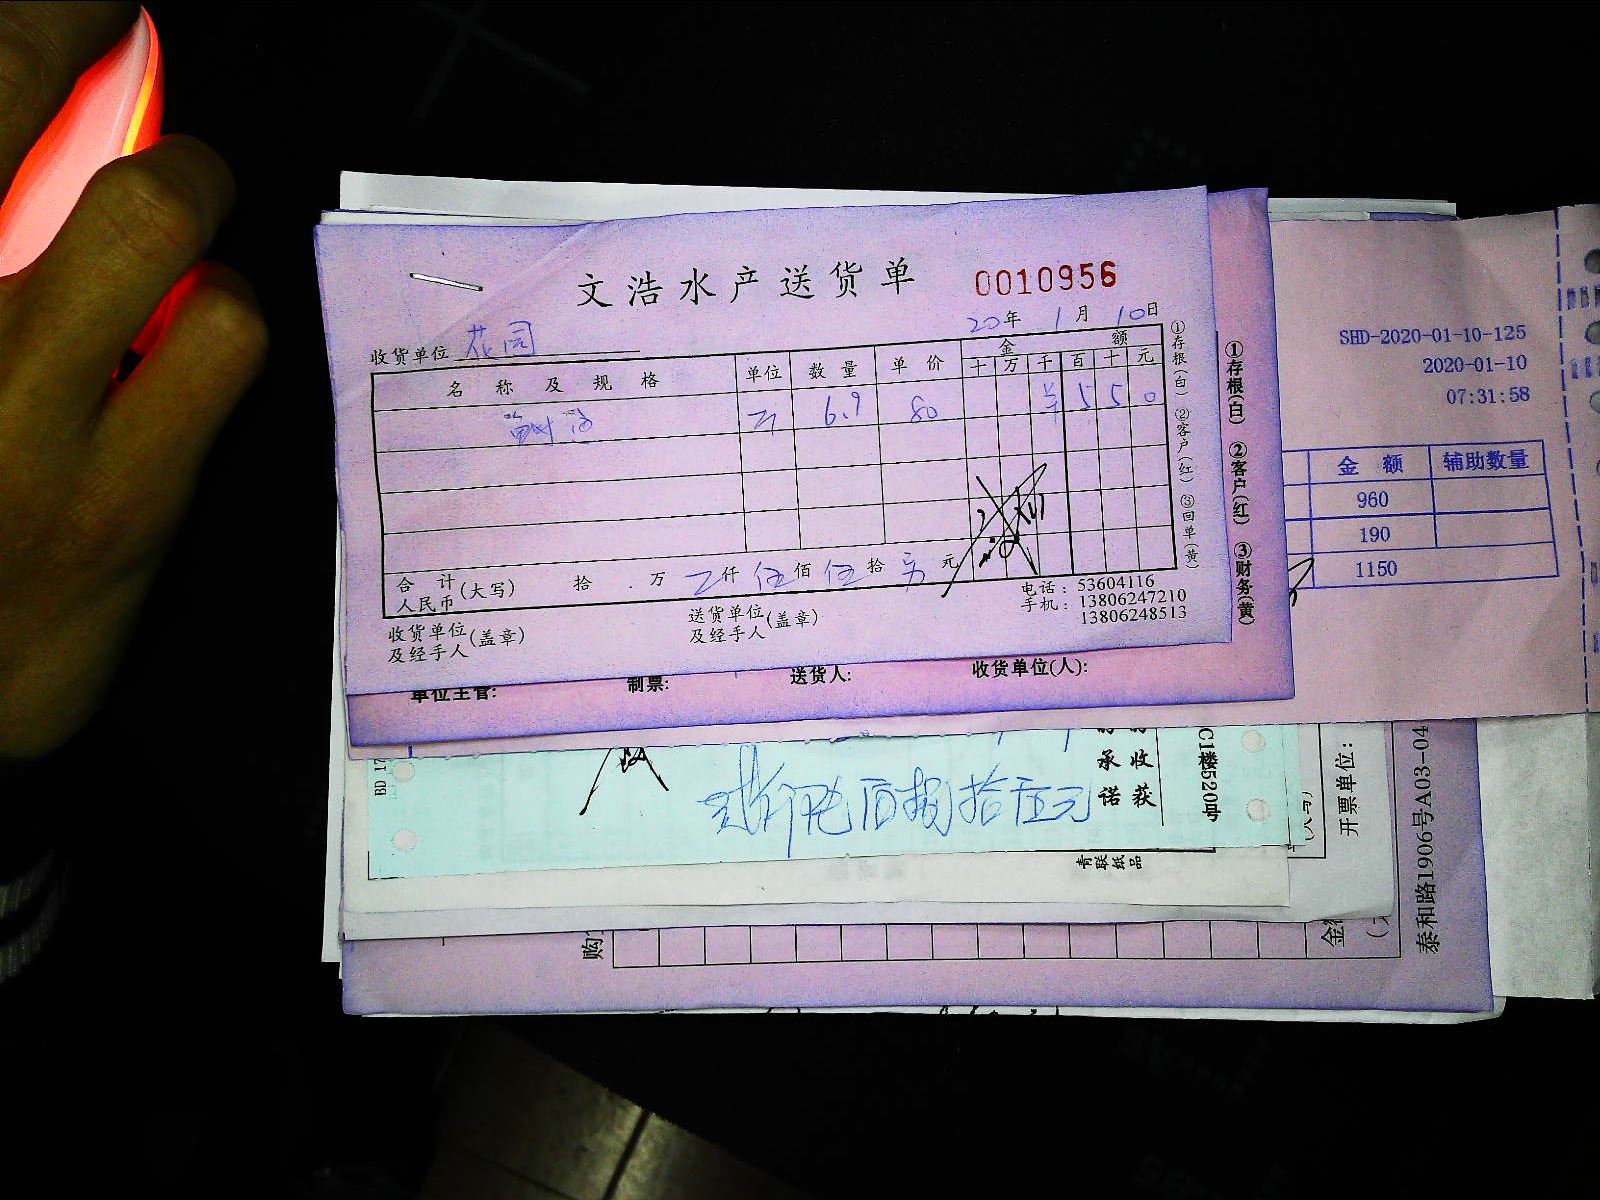 文浩水产送货单 0010956
20年 1月 10日
收货单位 花园
名称及规格 单位 数量 单价 金额
十 万 千 百 十 元
斤 6.9 80 ¥ 5 5 0
合计人民币(大写) 拾 万 仟 伍佰 伍拾 元
收货单位及经手人(盖章) 送货单位及经手人(盖章)
电话：53604116
手机：13806247210
13806248513
①存根(白) ②客户(红) ③回单(黄)
①存根(白) ②客户(红) ③财务(黄)
单位主管: 制票: 送货人: 收货单位(人):
SHD-2020-01-10-125
2020-01-10
07:31:58
金额 辅助数量
960
190
1150
BD 17
拾伍元
承诺
收获
C1楼520号
青联纸品
开票单位：
泰和路1906号A03-04
购
金